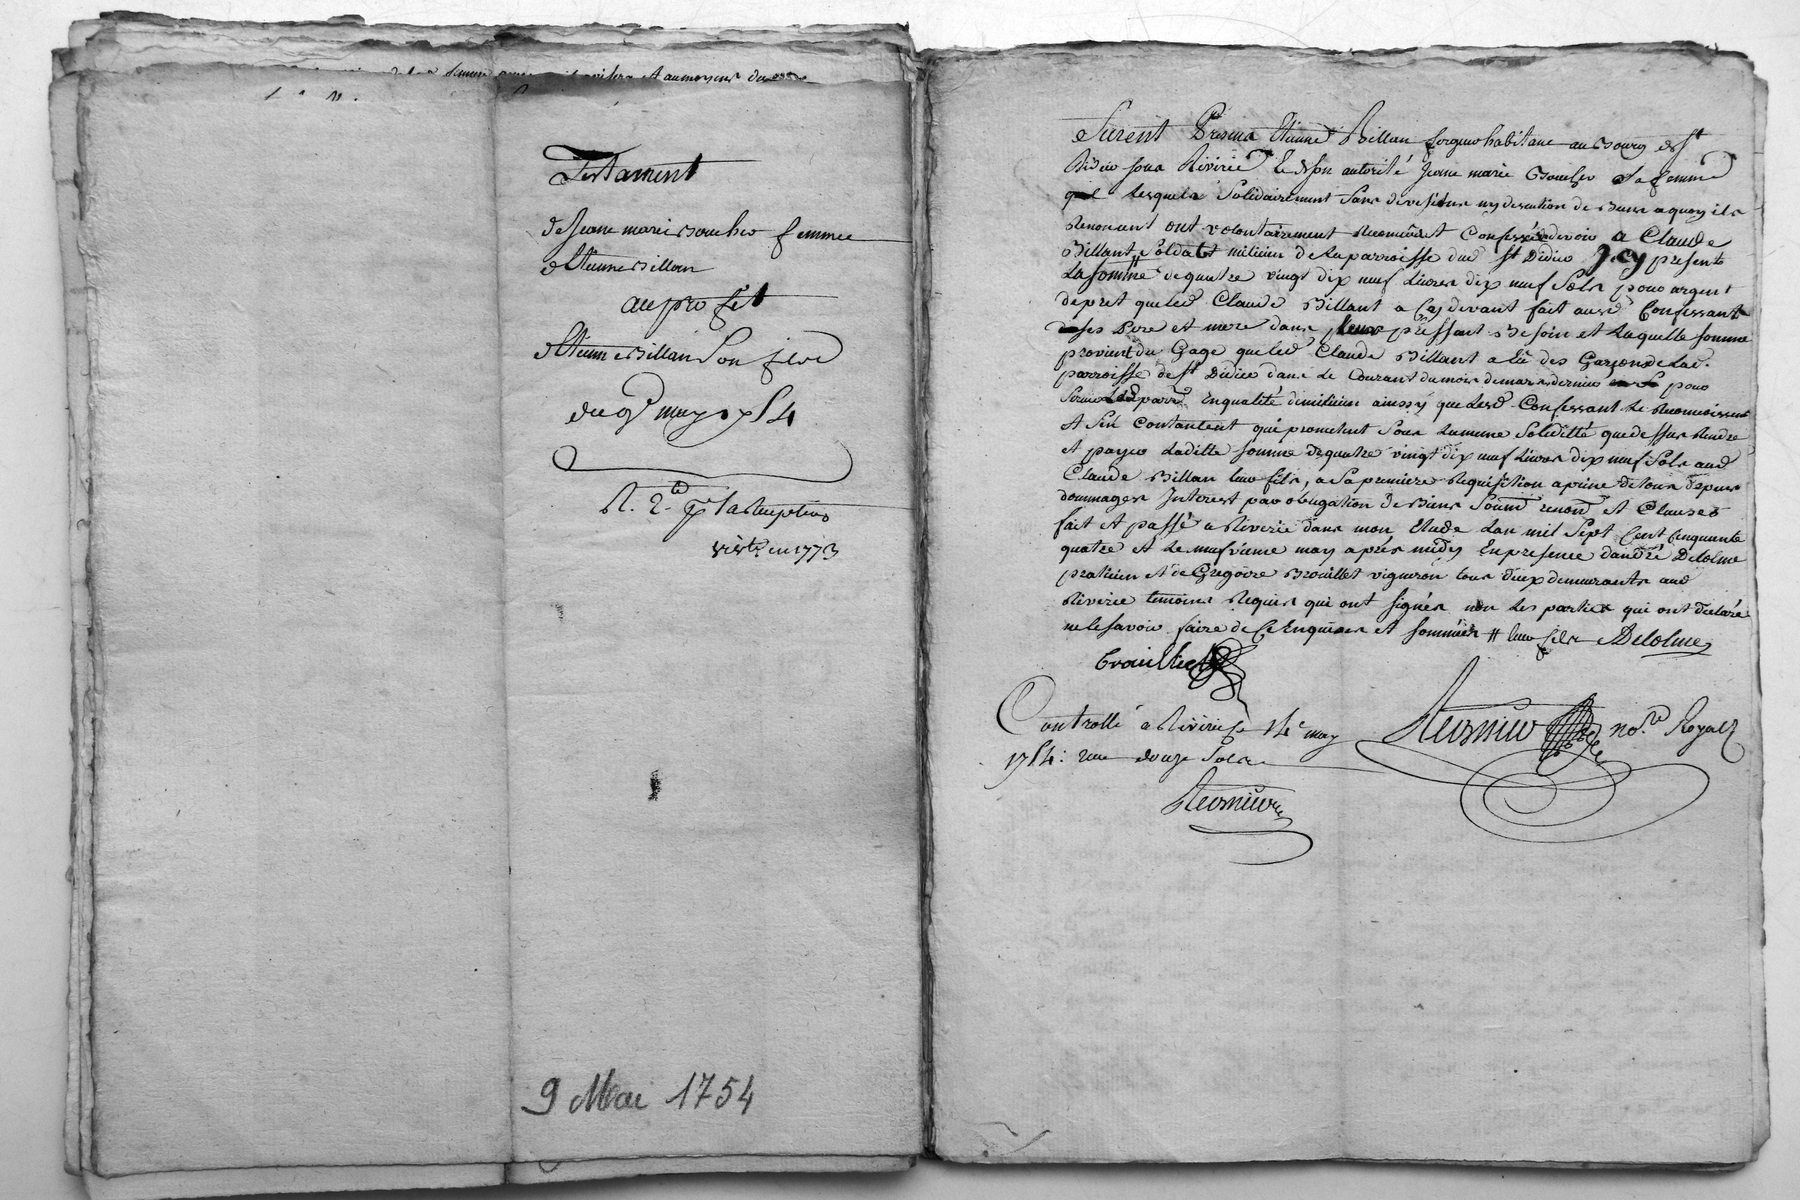 Testament
de Jeane marie Boucher femme
d'Etienne Billan
au profit
d'Etienne Billan Son fils
du 9e may 1754
visté en 1773
9 Mai 1754
Furent Presens Etienne Billan habitant au Bourg de St
Didier sous Riviriee Et de Son autorité Jeane marie Boucher Sa femme
lesquels Solidairement Sans division ny discution de Biens a quoy ils
Renoncent ont volontairement Reconnû et Confessé devoir a Claude
Billant Soldat milicien de la parroisse dud St Didier Jcy present
La somme de quatre vingt dix neuf Livres dix neuf Sols pour argent
de pret que led Claude Billant a Cy devant fait ausd Confessant
ses Pere et mere dans leur pressant Besoin et laquelle somme
provient du Gage que led Claude Billant a Eü des Garçons de lad
parroisse de St Didier dans le Courant du mois de mars dernier pour
Servir Lad parr En qualité de milicien ainssy que lesd Confessant le Reconnoissent
Et S'en Contantent qui promettent Sous La meme Solidité que dessus Rendre
Et payer Laditte somme de quatre vingt dix neuf Livres dix neuf Sols aud
Claude Billan leur fils, a Sa premiere Requisition a peine de tous depens
dommages Interest par obligation de Biens Soumd renond Et Clauses
fait Et passé a Riverie dans mon Etude L'an mil Sept Cent Cinquante
quatre et le neufvieme may aprés midy En presence d'andré Delolme
praticien et de Gregoire Brouillet vigneron tous deux demeurants aud
Riverie temoins Requis qui ont signés non les parties qui ont déclaré
ne le savoir faire de Ce Enquises et sommées # leur fils Delolme
brouillet
Controllé a Riverie le 14e may
1754: reçu douze Sols
no.re Royal